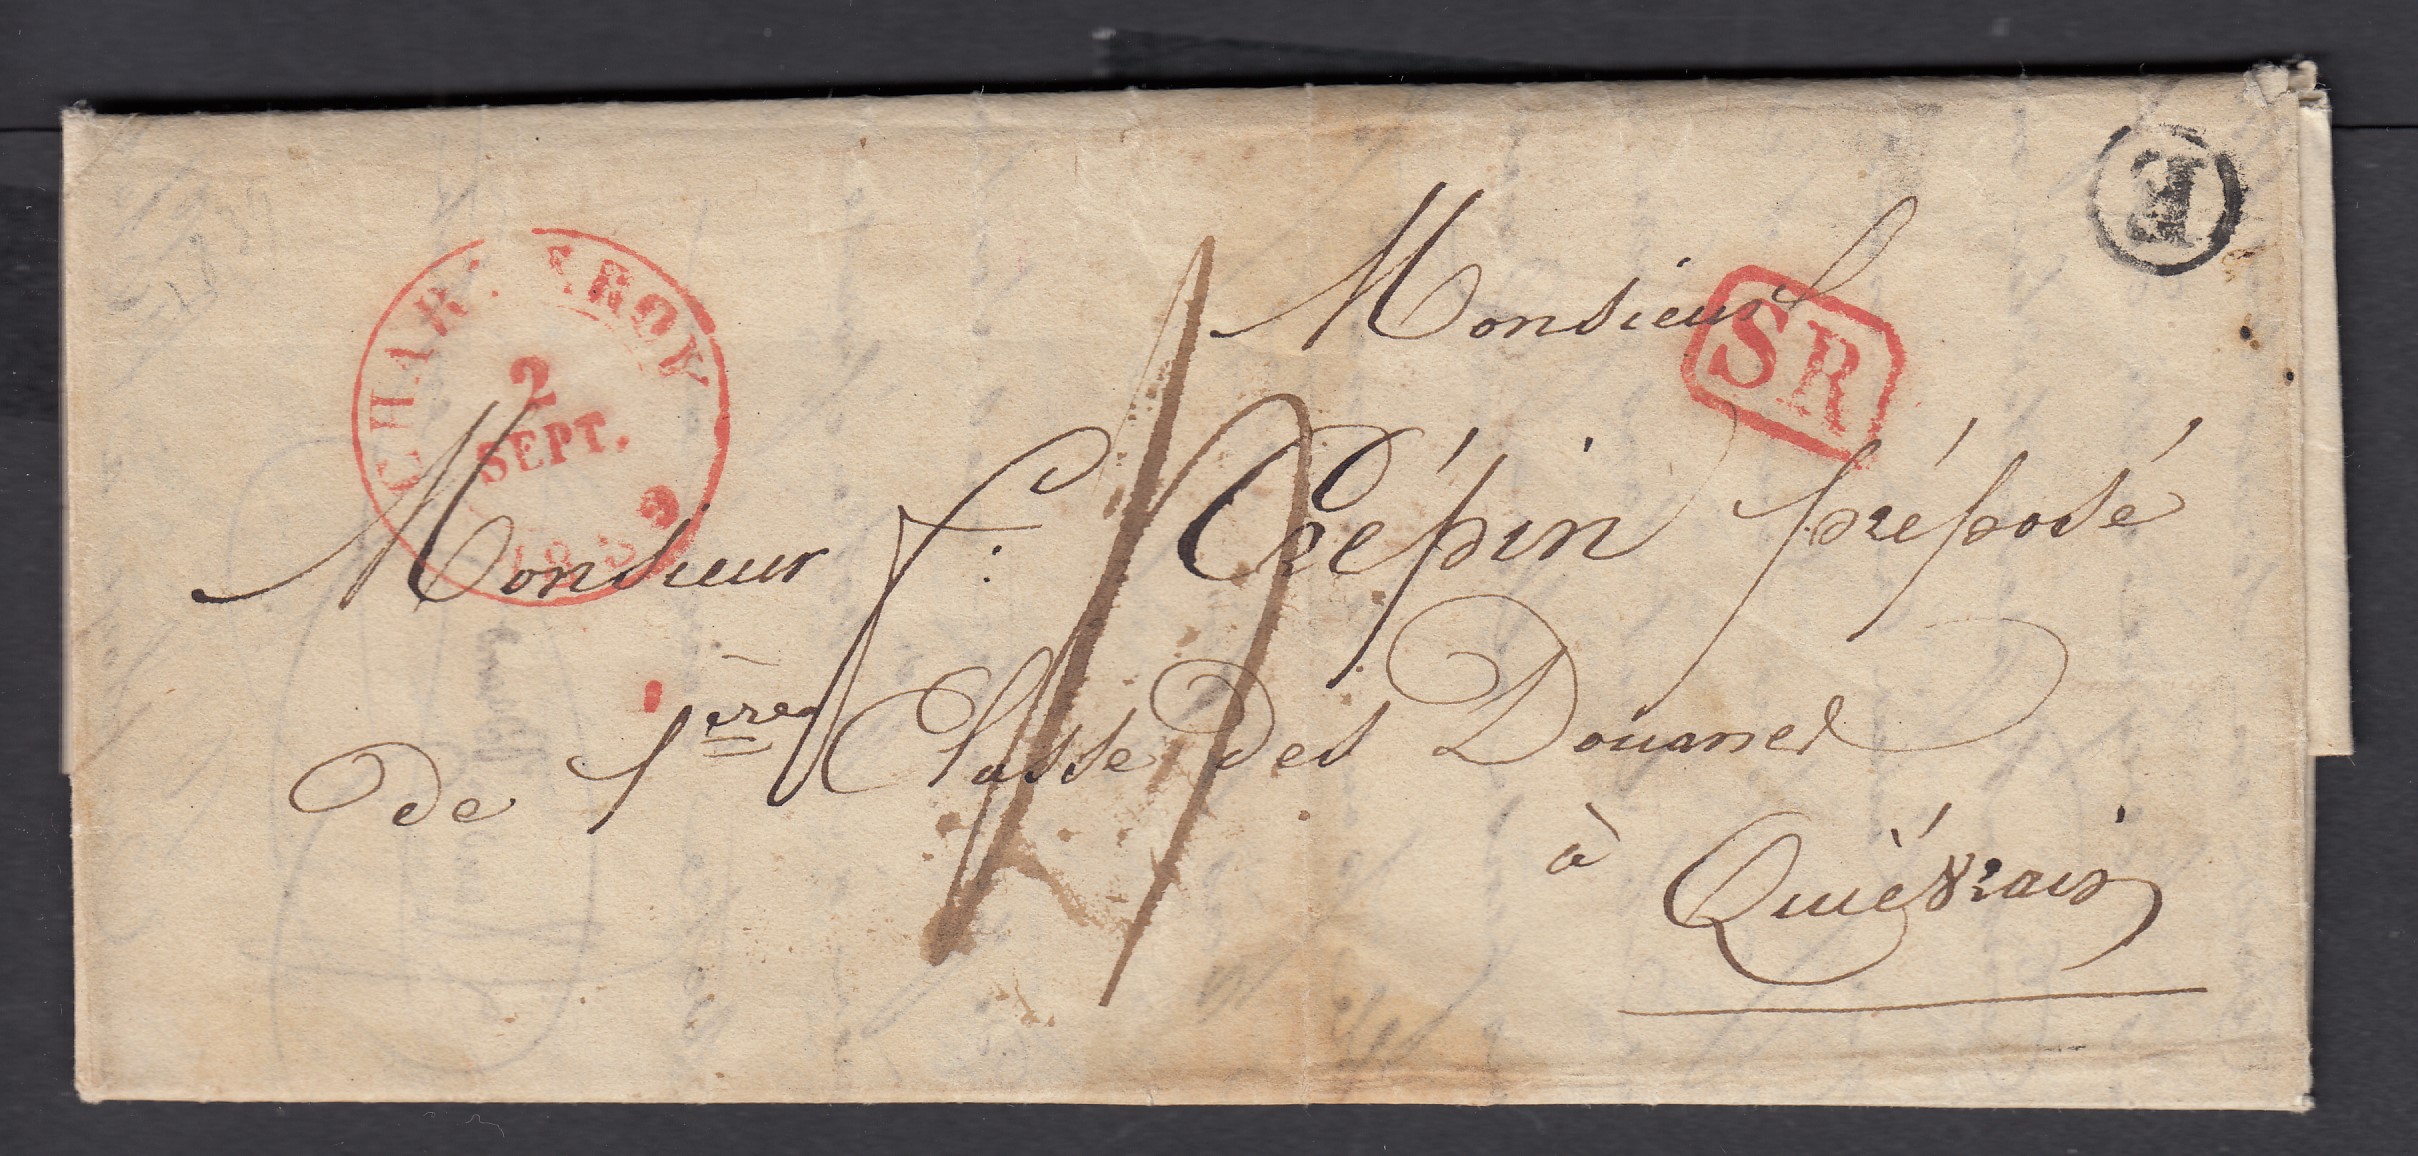 Monsieur
Monsieur F. Crépin préposé
de 1ère Classe des Douanes
à Quiévrain
CHARLEROY
2
SEPT.
1839
SR